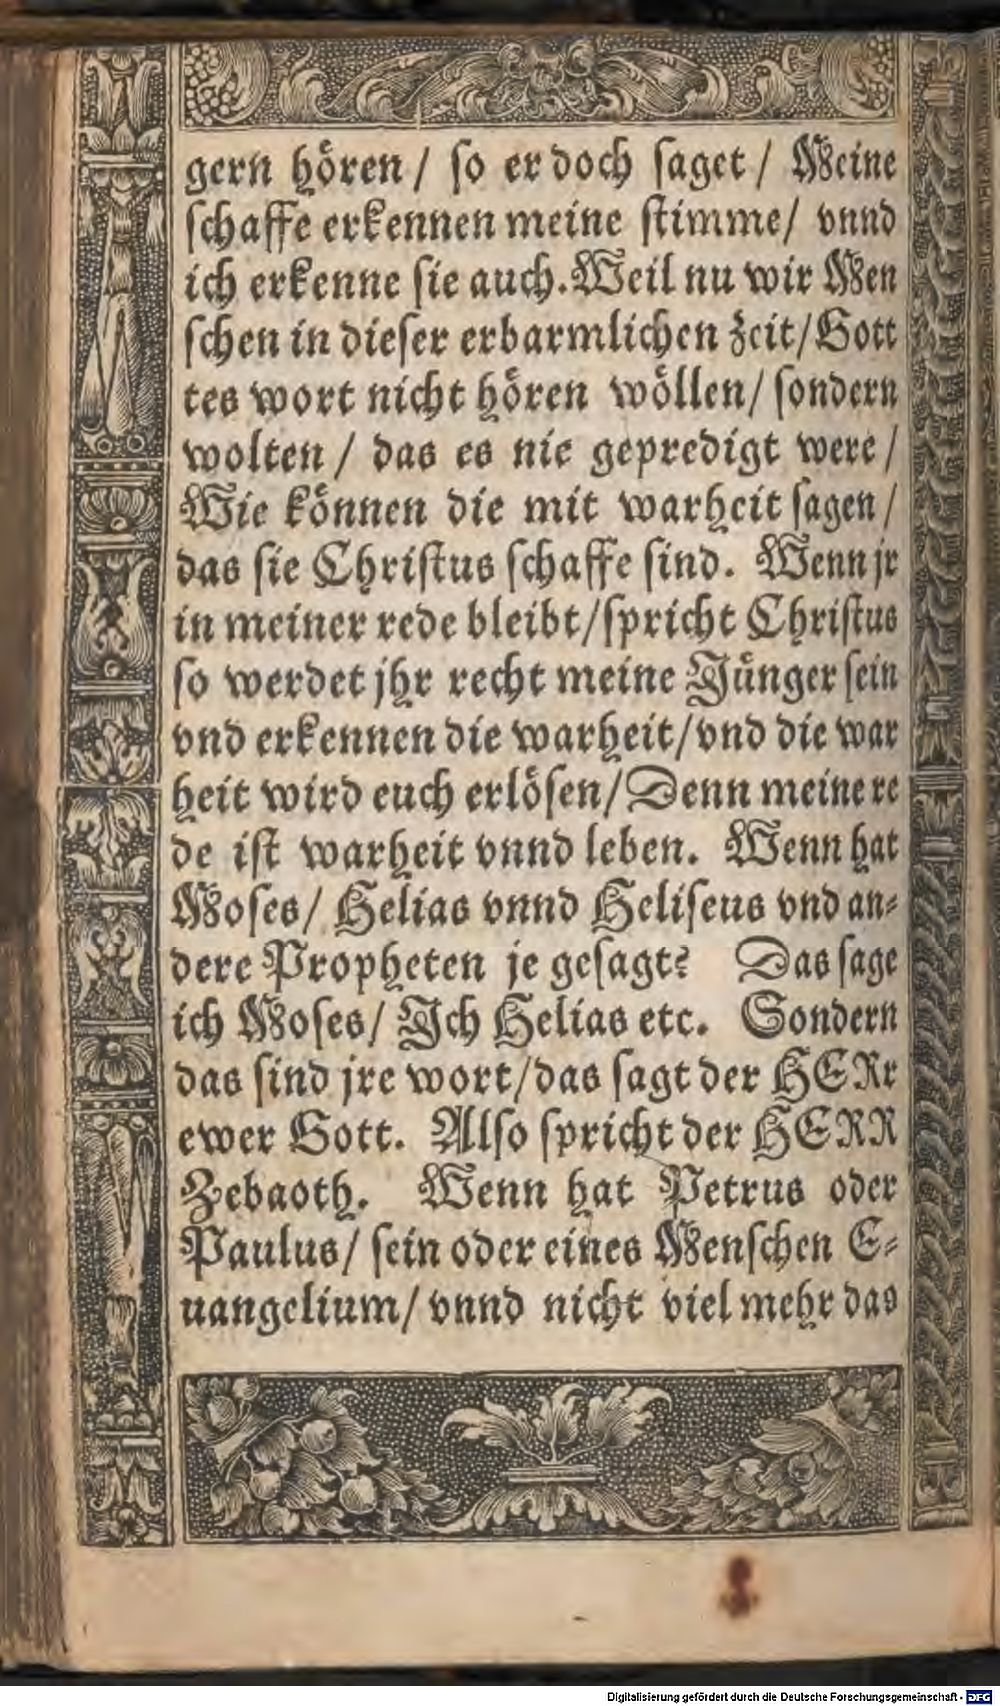 gern hören / so er doch saget / Meine
schaffe erkennen meine stimme / vnnd
ich erkenne sie auch. Weil nu wir Men
schen in dieser erbarmlichen zeit / Gott
tes wort nicht hören wöllen / sondern
wolten / das es nie gepredigt were /
Wie können die mit warheit sagen /
das sie Christus schaffe sind. Wenn jr
in meiner rede bleibt / spricht Christus
so werdet jhr recht meine Jünger sein
vnd erkennen die warheit / vnd die war
heit wird euch erlösen / Denn meine re
de ist warheit vnnd leben. Wenn hat
Moses / Helias vnnd Heliseus vnd an-
dere Propheten je gesagt? Das sage
ich Moses / Ich Helias etc. Sondern
das sind jre wort / das sagt der HERr
ewer Gott. Also spricht der HERR
Zebaoth. Wenn hat Petrus oder
Paulus / sein oder eines Menschen E-
uangelium / vnnd nicht viel mehr das
Digitalisierung gefördert durch die Deutsche Forschungsgemeinschaft - DFG